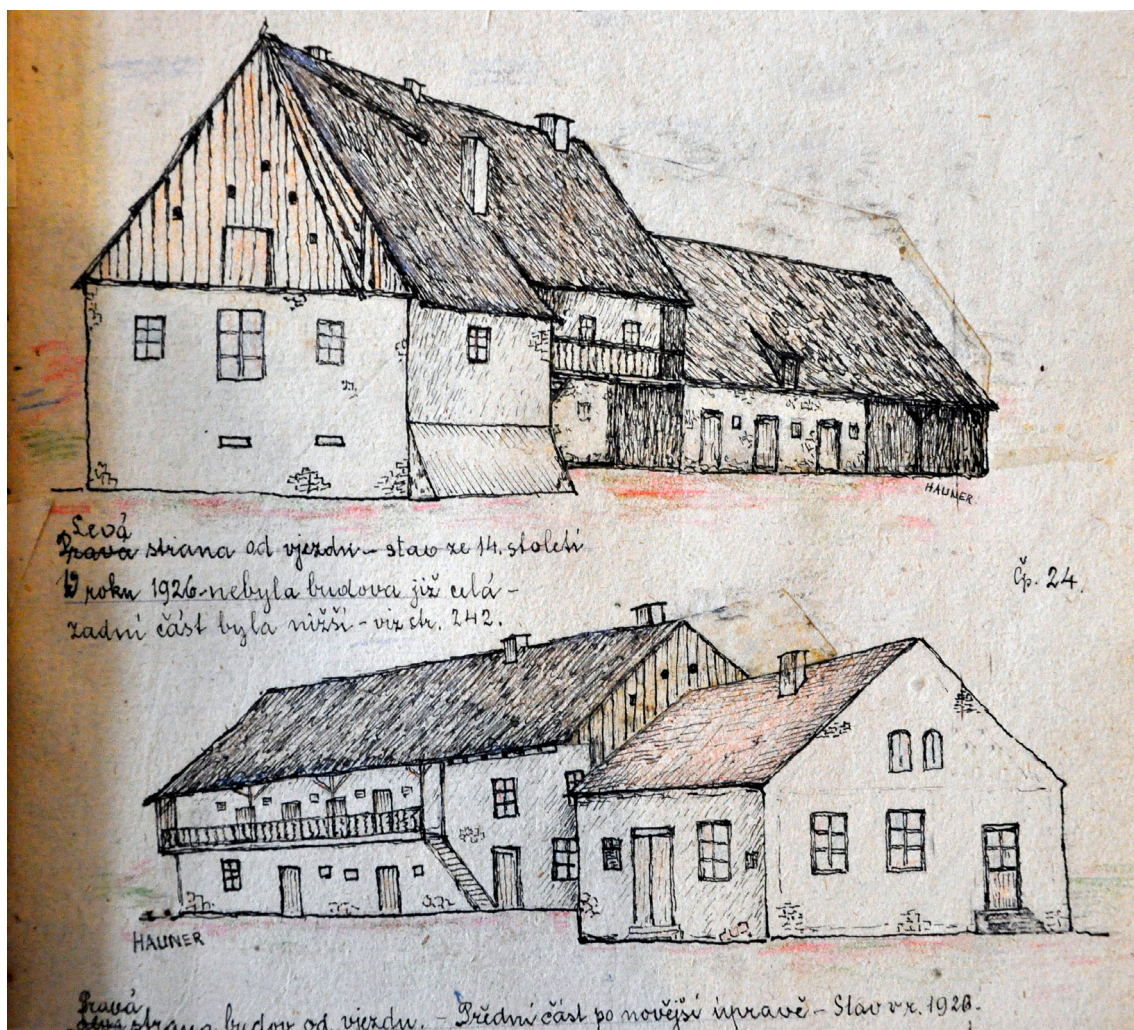 HAUNER
Levá
Pravá strana od vjezdu - stav ze 14. století
V roku 1926 - nebyla budova již celá -
zadní část byla nižší - viz str. 242.
Čp. 24.
HAUNER
Pravá
Levá strana budov od vjezdu. - Přední část po novější úpravě - Stav v r. 1926.